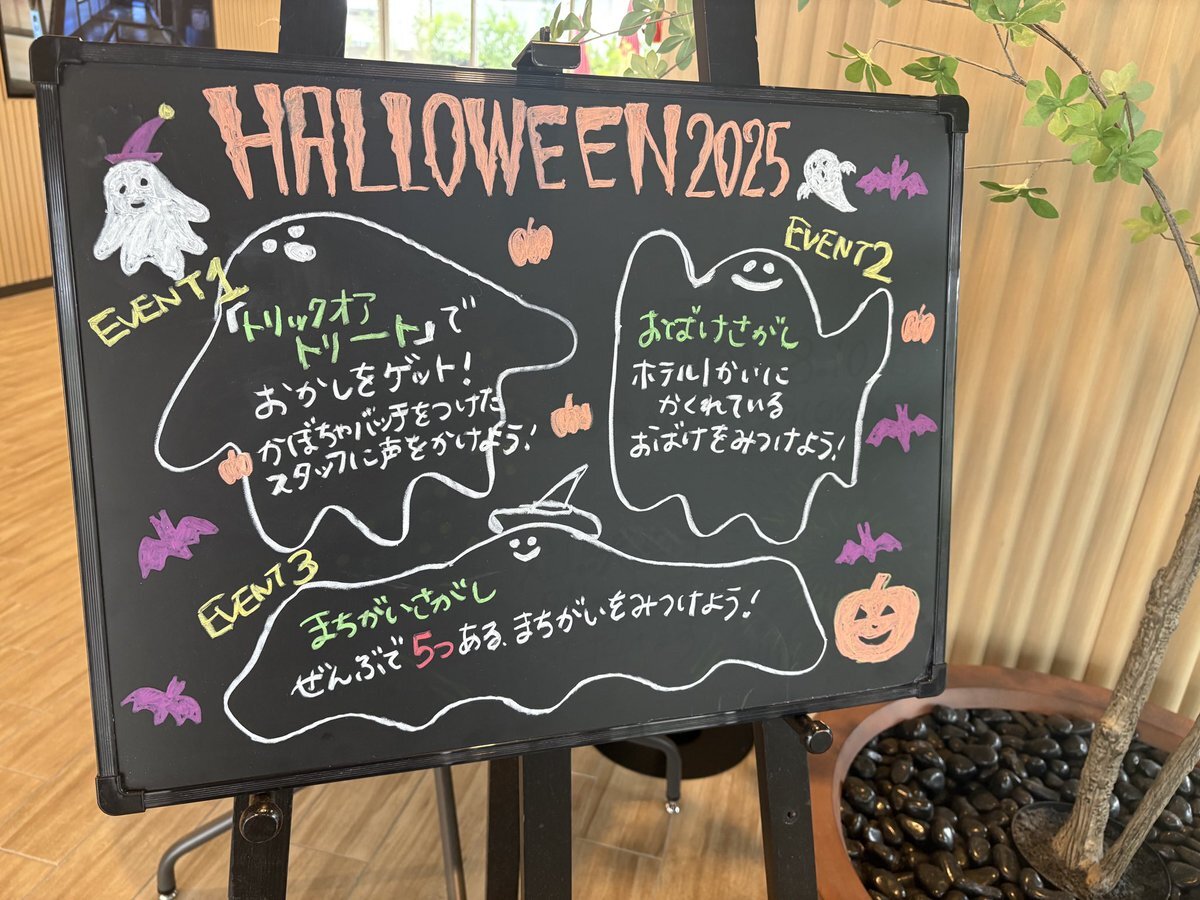 HALLOWEEN 2025
EVENT 1
「トリックオア
トリート」で
おかしをゲット!
かぼちゃバッチをつけた
スタッフに声をかけよう!
EVENT 2
おばけさがし
ホテル1かいに
かくれている
おばけをみつけよう!
EVENT 3
まちがいさがし
ぜんぶで5つある、まちがいをみつけよう!